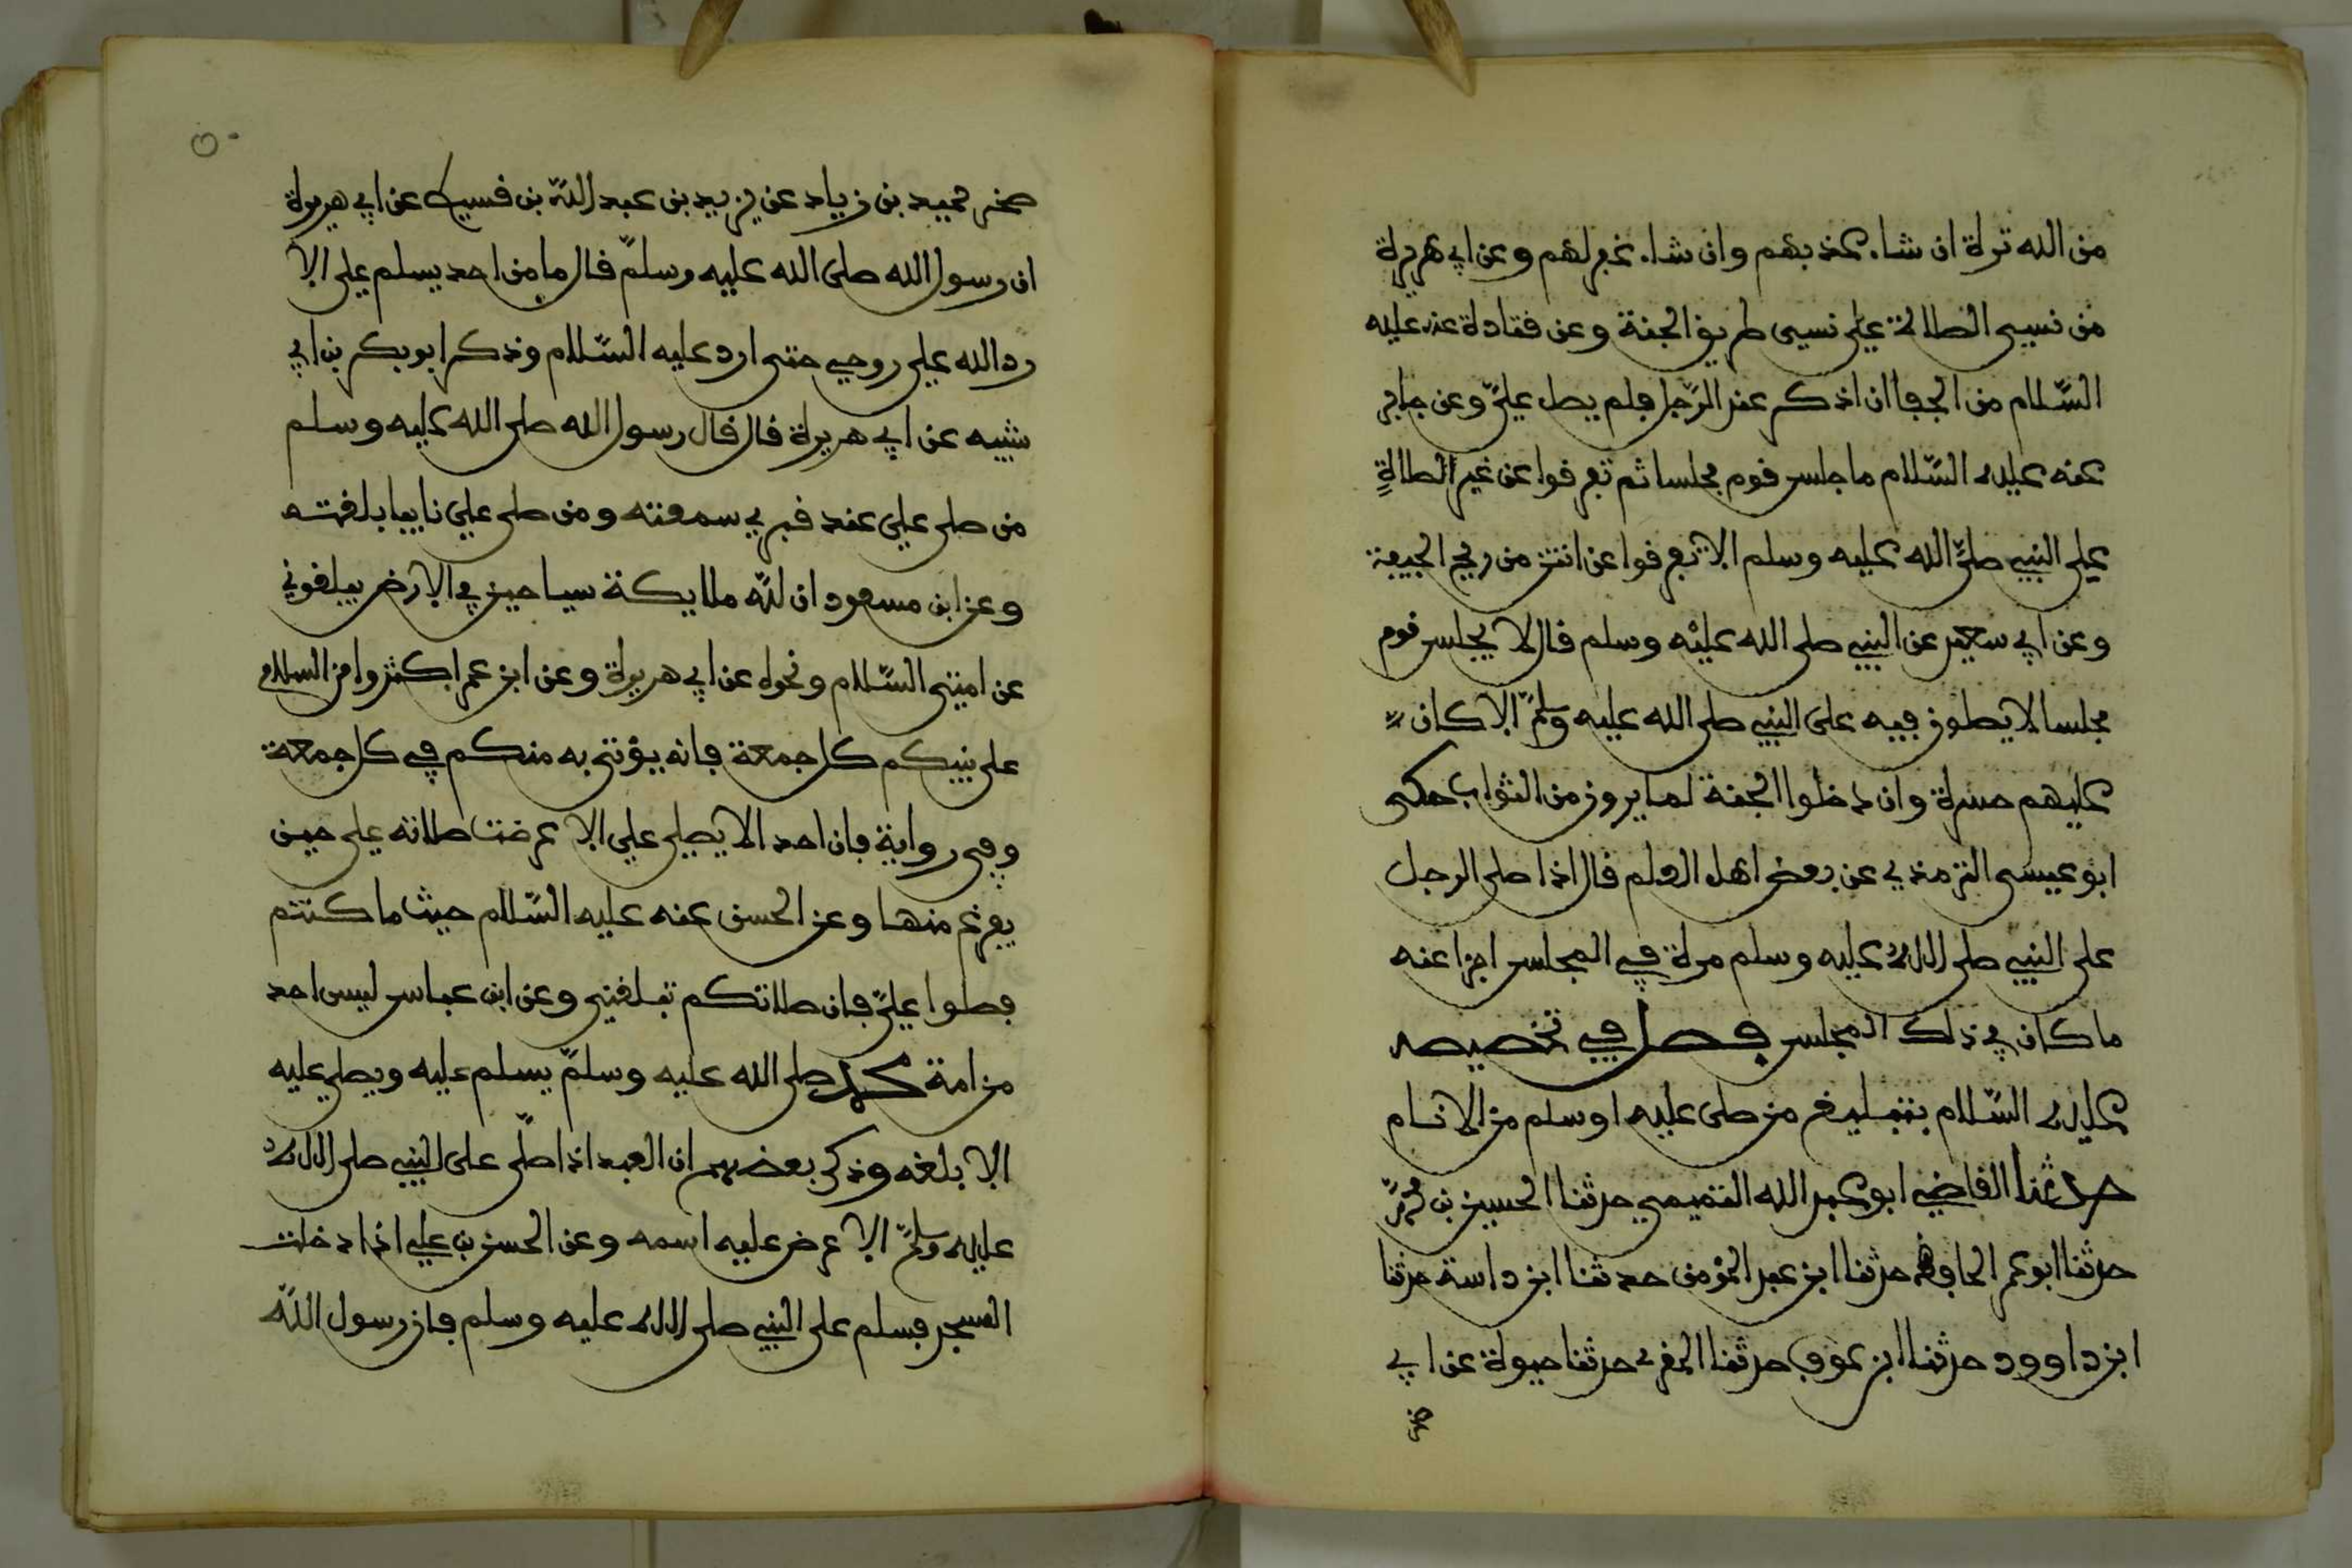 من الله ترة ان شاء عذبهم وان شاء غفر لهم وعن ابي هريرة
من نسي الصلاة علي نسي طريق الجنة وعن قتادة عنه عليه
السّلام من الجفا ان اذكر عند الرّجل فلم يصل عليّ وعن جابر
عنه عليه السّلام ما جلس قوم مجلسا ثم تفرقوا عن غير الصلاة
على النبي صلّى الله عليه وسلم الا تفرقوا عن انتن من ريح الجيفة
وعن ابي سعيد عن النبي صلى الله عليه وسلم قال لا يجلس قوم
مجلسا لا يصلون فيه على النبي صلى الله عليه وسلّم الا كان
عليهم حسرة وان دخلوا الجنة لما يرون من الثواب حكى
ابو عيسى الترمذي عن بعض اهل العلم قال اذا صلى الرجل
على النبي صلى الله عليه وسلم مرة في المجلس اجزا عنه
ما كان في ذلك المجلس فصل في تخصيصه
عليه السّلام بتبليغ من صلى عليه او سلم من الانام
حدثنا القاضي ابو عبد الله التميمي حدثنا الحسين بن محمّد
حدثنا ابو عمر الحافظ حدثنا ابن عبد المؤمن حدثنا ابن داسة حدثنا
ابن داوود حدثنا ابن عوف حدثنا المقري حدثنا حيوة عن ابي
صخر
٥٠
صخر حميد بن زياد عن يزيد بن عبد الله بن قسيط عن ابي هريرة
ان رسول الله صلى الله عليه وسلّم قال ما من احد يسلم علي الا
رد الله علي روحي حتى ارد عليه السّلام وذكر ابو بكر بن ابي
شيبه عن ابي هريرة قال قال رسول الله صلى الله عليه وسلم
من صلى علي عند قبري سمعته ومن صلى علي نايبا بلغته
وعن ابن مسعود ان لله ملايكة سياحين في الارض يبلغوني
عن امتي السّلام ونحوه عن ابي هريرة وعن ابن عمر اكثروا من السلام
على نبيكم كل جمعة فانه يؤتى به منكم في كل جمعة
وفي رواية فان احد الا يصلي علي الا عرضت صلاته علي حين
يفرغ منها وعن الحسن عنه عليه السّلام حيث ما كنتم
فصلوا عليّ فان صلاتكم تبلغني وعن ابن عباس ليس احد
من امة محمد صلى الله عليه وسلّم يسلم عليه ويصلي عليه
الا بلغه وذكر بعضهم ان العبد اذا صلّى على النبي صلى الله
عليه وسلّم الا عرض عليه اسمه وعن الحسن بن علي اذا دخلت
المسجد فسلم على النبي صلى الله عليه وسلم فان رسول الله